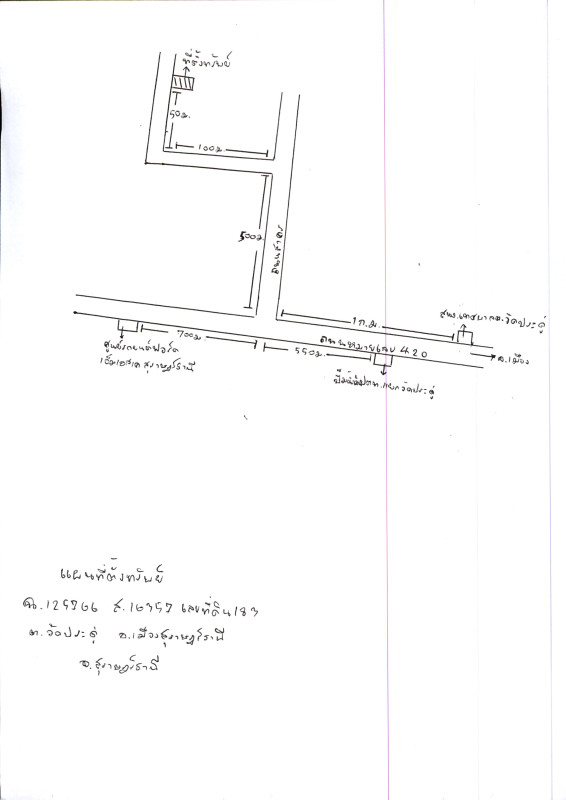 ที่ตั้งทรัพย์
50ม.
100ม.
500ม.
ถนนสาธร
1 ก.ม.
สนง.เทศบาลต.วัดประดู่
700ม.
ถนนหมายเลข 420
550ม.
อ.เมือง
ศูนย์รถยนต์ฟอร์ด
เอ็มเอสเค สุราษฎร์ธานี
ปั๊มน้ำมันปตท. แยกวัดประดู่
แผนที่ตั้งทรัพย์
ฉ.125766 ส.16357 เลขที่ดิน 183
ต.วัดประดู่ อ.เมืองสุราษฎร์ธานี
จ.สุราษฎร์ธานี